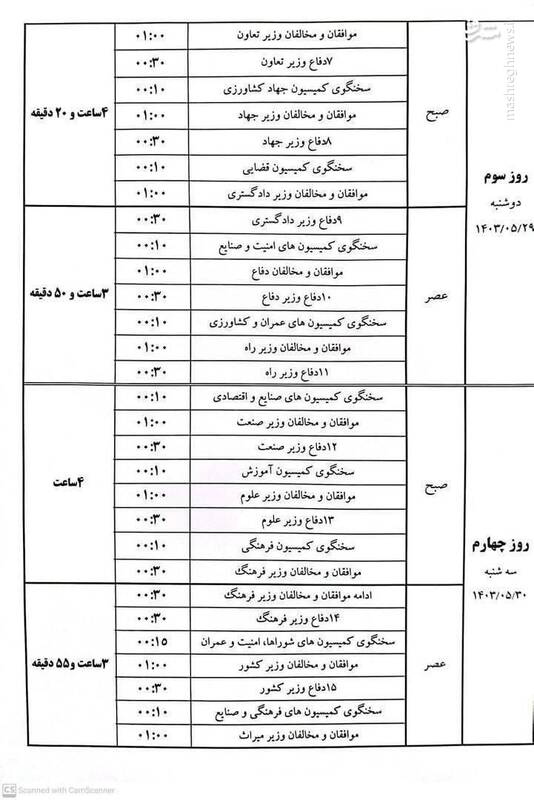 موافقان و مخالفان وزیر تعاون ۰۱:۰۰
۷دفاع وزیر تعاون ۰۰:۳۰
سخنگوی کمیسیون جهاد کشاورزی ۰۰:۱۰
روز سوم
دوشنبه
۱۴۰۳/۰۵/۲۹
صبح
موافقان و مخالفان وزیر جهاد ۰۱:۰۰
۴ساعت و ۲۰ دقیقه
۸دفاع وزیر جهاد ۰۰:۳۰
سخنگوی کمیسیون قضایی ۰۰:۱۰
موافقان و مخالفان وزیر دادگستری ۰۱:۰۰
۹دفاع وزیر دادگستری ۰۰:۳۰
سخنگوی کمیسیون های امنیت و صنایع ۰۰:۱۰
موافقان و مخالفان دفاع ۰۱:۰۰
عصر
۱۰دفاع وزیر دفاع ۰۰:۳۰
۳ساعت و ۵۰ دقیقه
سخنگوی کمیسیون های عمران و کشاورزی ۰۰:۱۰
موافقان و مخالفان وزیر راه ۰۱:۰۰
۱۱دفاع وزیر راه ۰۰:۳۰
سخنگوی کمیسیون های صنایع و اقتصادی ۰۰:۱۰
موافقان و مخالفان وزیر صنعت ۰۱:۰۰
۱۲دفاع وزیر صنعت ۰۰:۳۰
روز چهارم
سه شنبه
۱۴۰۳/۰۵/۳۰
صبح
سخنگوی کمیسیون آموزش ۰۰:۱۰
۴ساعت
موافقان و مخالفان وزیر علوم ۰۱:۰۰
۱۳دفاع وزیر علوم ۰۰:۳۰
سخنگوی کمیسیون فرهنگی ۰۰:۱۰
موافقان و مخالفان وزیر فرهنگ ۰۰:۳۰
ادامه موافقان و مخالفان وزیر فرهنگ ۰۰:۳۰
۱۴دفاع وزیر فرهنگ ۰۰:۳۰
سخنگوی کمیسیون های شوراها، امنیت و عمران ۰۰:۱۵
عصر
موافقان و مخالفان وزیر کشور ۰۱:۰۰
۳ساعت و۵۵ دقیقه
۱۵دفاع وزیر کشور ۰۰:۳۰
سخنگوی کمیسیون های فرهنگی و صنایع ۰۰:۱۰
موافقان و مخالفان وزیر میراث ۰۱:۰۰
CS Scanned with CamScanner
mashreghnews.ir